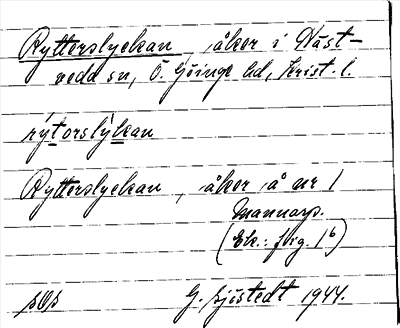 Rytterslyckan, åker i Häst-
veda sn, Ö. Göinge hd, Krist. l.
rýtorslýkan
Rytterslyckan, åker å nr 1
Mannarp.
(Ek.: fig. 16)
G. Sjöstedt 1944.